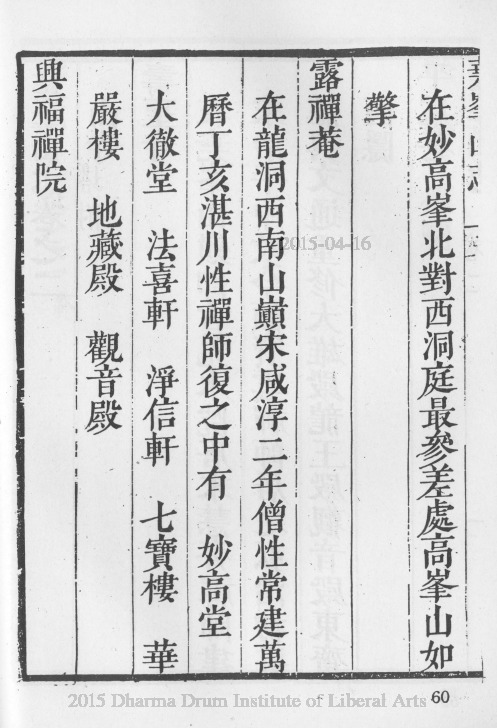 在妙高峯北對西洞庭最參差處高峯山如
擎
露禪菴
在龍洞西南山巔宋咸淳二年僧性常建萬
曆丁亥湛川性禪師復之中有　妙高堂
大徹堂　法喜軒　淨信軒　七寶樓　華
嚴樓　地藏殿　觀音殿
興福禪院
2015-04-16
2015 Dharma Drum Institute of Liberal Arts
60